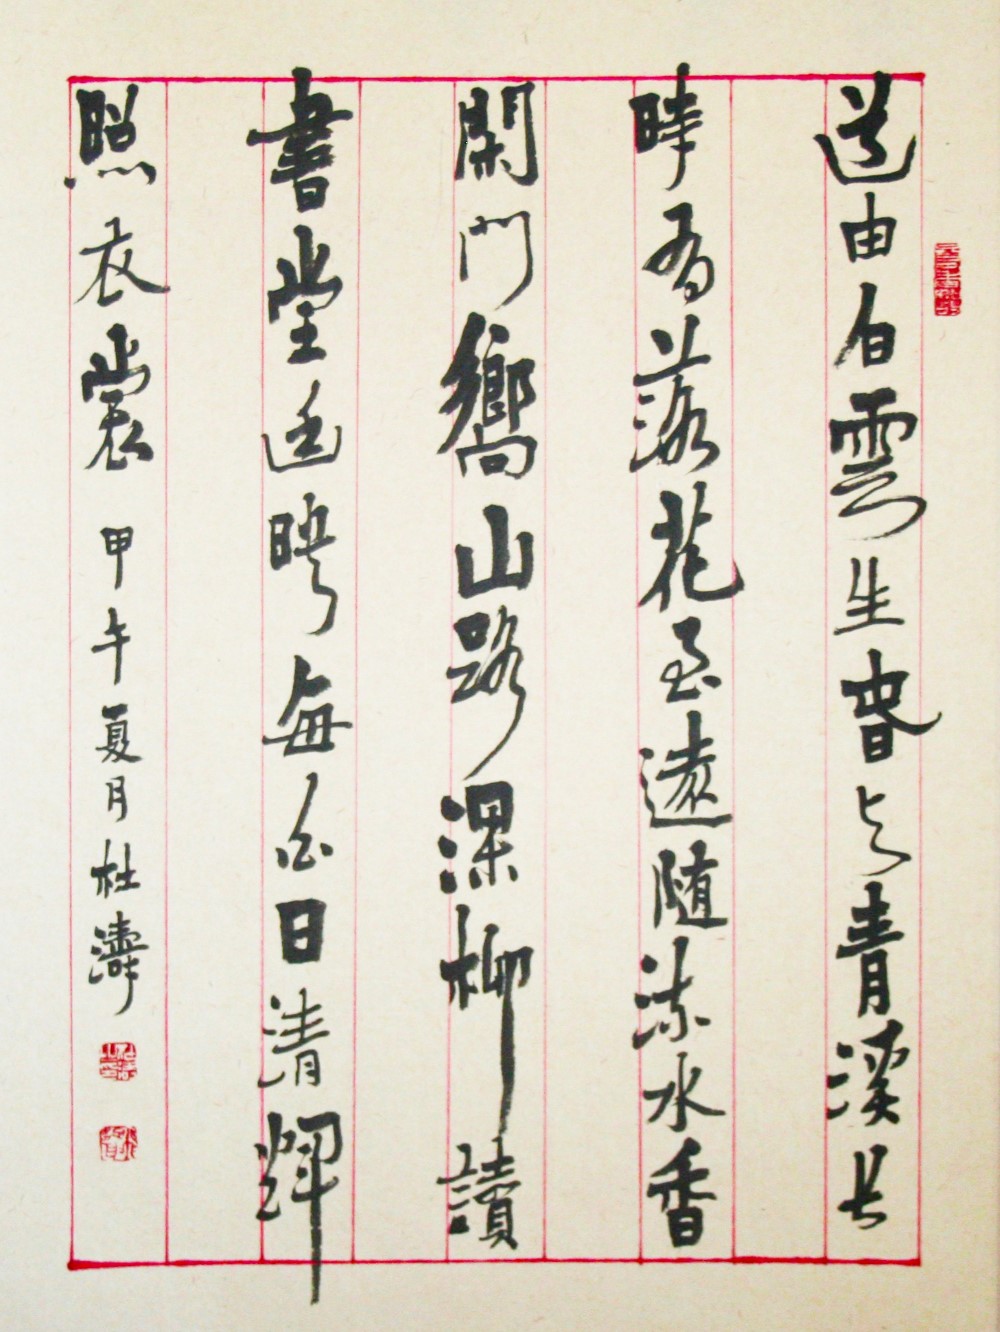 道由白雲生春与青溪长
時有落花至遠随流水香
閑門嚮山路深柳讀
書堂幽映每白日清輝
照衣裳 甲午夏月杜濤